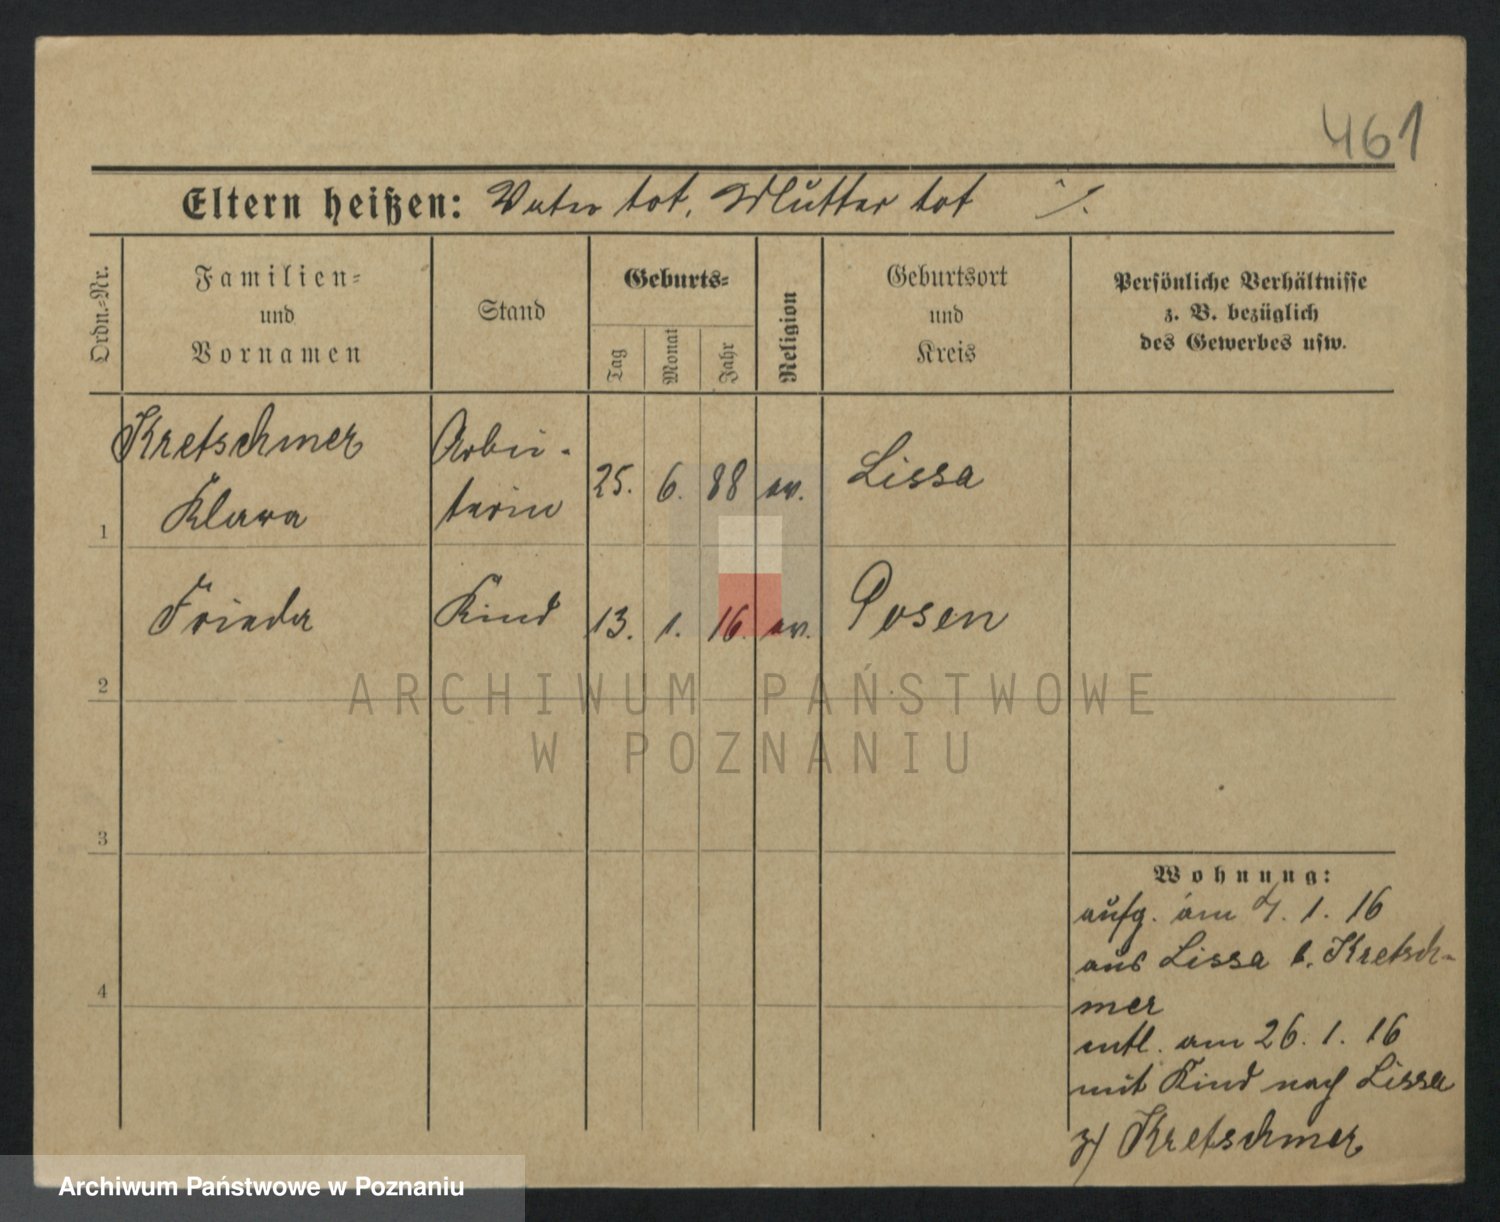 461
Eltern heißen: Vater tot, Mutter tot ·/.
Ordn.-Nr.
Familien-
und
Vornamen
Stand
Geburts-
Tag
Monat
Jahr
Religion
Geburtsort
und
Kreis
Persönliche Verhältnisse
z. B. bezüglich
des Gewerbes usw.
Kretschmer Arbei-
1 Klara terin 25. 6. 88 ev. Lissa
Frieda Kind 13. 1. 16 ev. Posen
2
3
4
Wohnung:
aufg. am 7. 1. 16
aus Lissa b. Kretsch-
mer
entl. am 26. 1. 16
mit Kind nach Lissa
z/ Kretschmer
ARCHIWUM PAŃSTWOWE
W POZNANIU
Archiwum Państwowe w Poznaniu